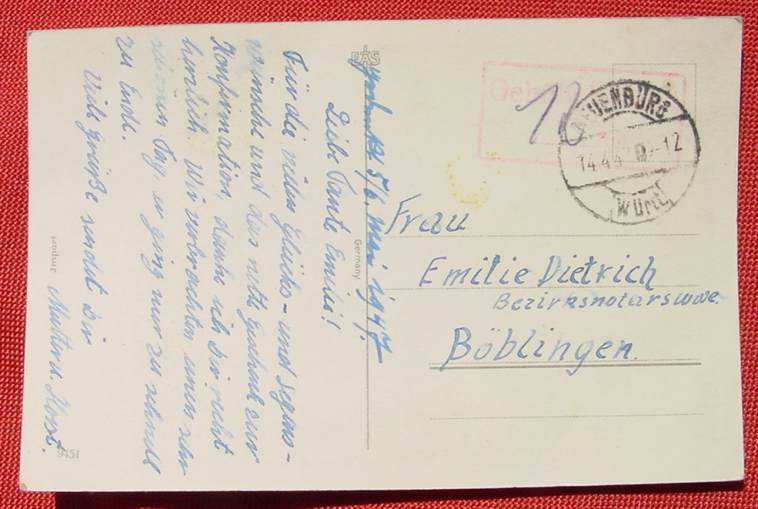 Liebe Tante Emmi!
Für die vielen Glücks- und Segens-
wünsche und das nette Geschenk zur
Konfirmation, danke ich Dir recht
herzlich. Wir verbrachten einen sehr
schönen Tag, er ging nur zu schnell
zu Ende.
Viele Grüße sendet Dir
Horst.
9451
EAS
5/6. Mai 1947
Germany
Geb
12
NEUENBÜRG
14.4.
-12
(Württ)
Frau
Emilie Dietrich
Bezirksnotarswwe.
Böblingen.